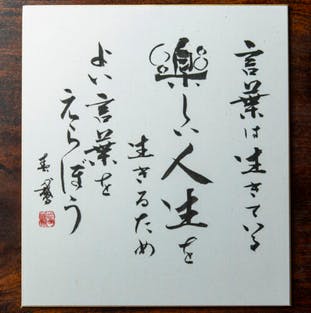 言葉は生きている
楽しい人生を
生きるため
よい言葉を
えらぼう